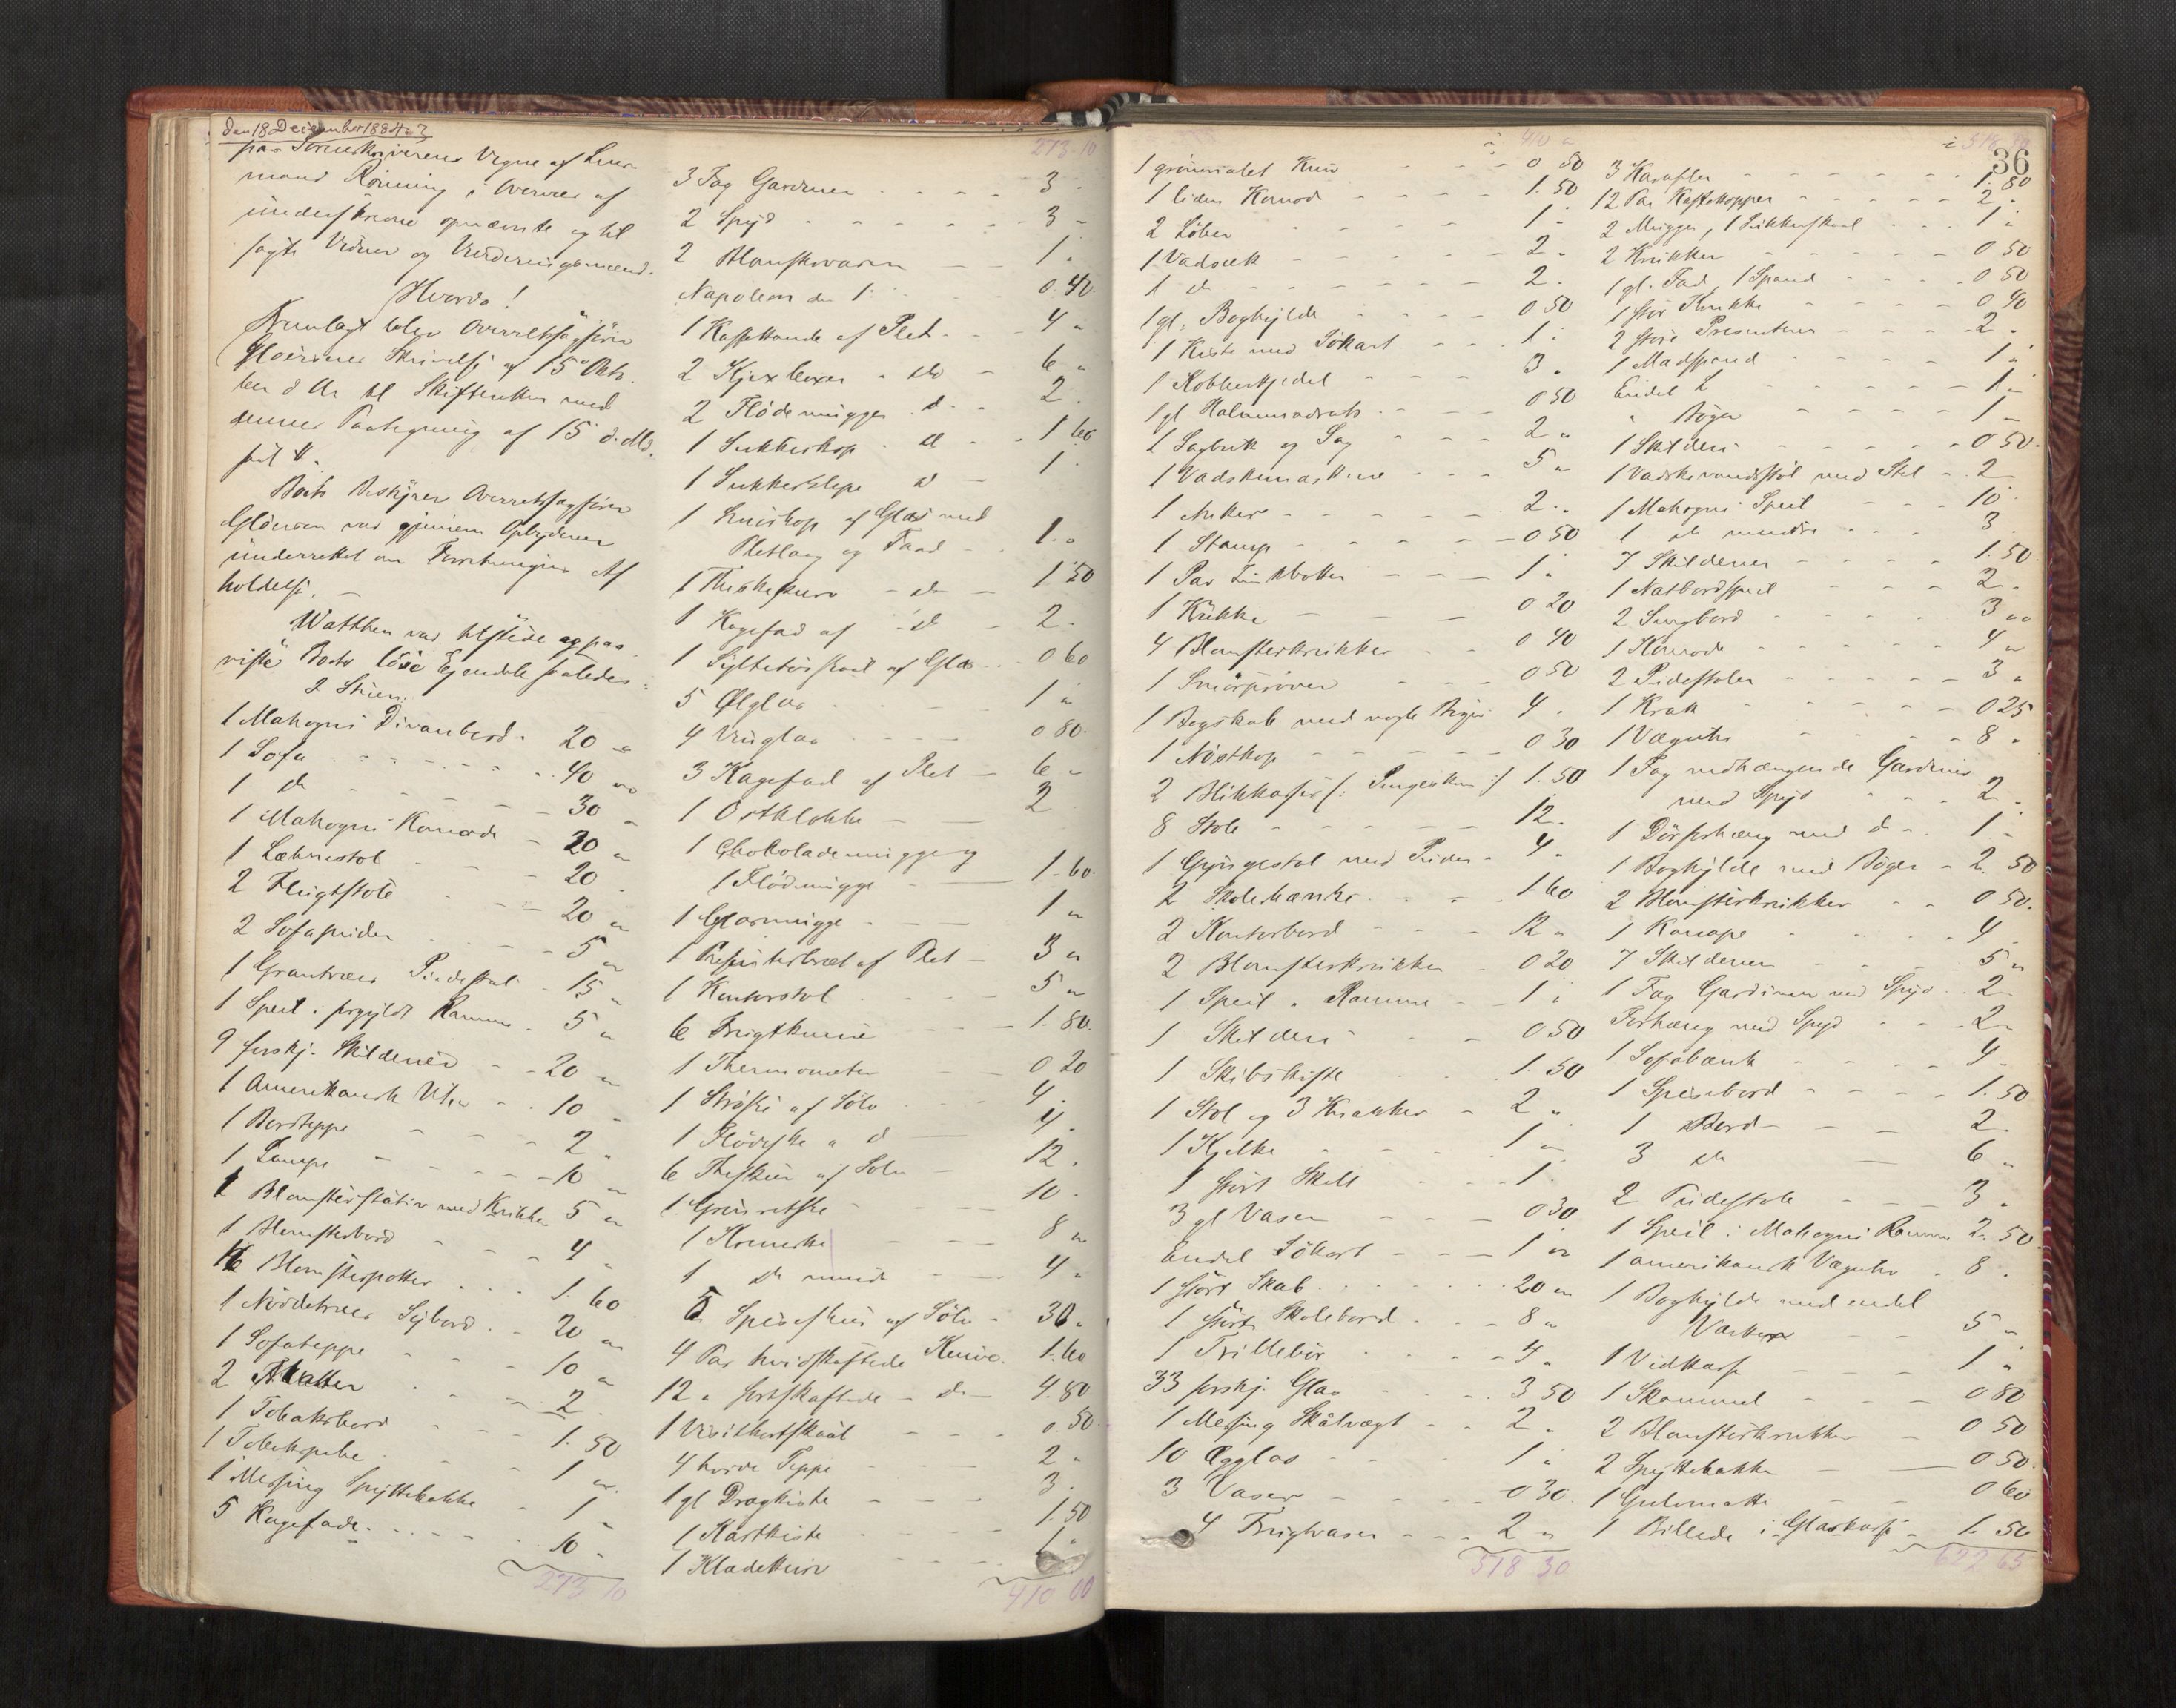 den 18 December 1884
paa Sorenskriverens Vegne af Lens-
mand Rönning i Overvær af
underskrevne opnævnte og til-
sagte Vidner og Vurderingsmænd.
Hvorda!
Fremlagt blev Overretssagfører
Skrivelse af 15 Okto-
ber d. A. til Skifteretten med
dennes Paategning af 15 d. Md.
Boets Bestyrer Overretssagfører
var gjennem Opbydere
underrettet om Forretningens Af-
holdelse. —
var tilstede og paa-
viste Boets löse Eiendele saaledes:
2 Stuen.
1 Mahogni Divanbord - 20 "
1 Sofa - 40 "
1 do - 30 "
1 Mahogni Komode - 20 "
1 Lænestol - 20
2 Fløigtstole - 20 "
2 Sofapuder - 5 "
1 Grantræes Pidestal - 15 "
1 Speil i forgyldt Ramme - 5 "
9 forskj. Skilderier - 20 "
1 Amerikansk Uhr - 10 "
1 Bordteppe - 2 "
1 Lampe - 10 "
1 Blomsterstativ med Krukker 5 "
1 Blomsterbord - 4 "
16 Blomsterpotter - 1. 60
1 Nöddetræes Sybord - 20 "
1 Sofateppe - 10 "
2 Matter - 2
1 Tobaksbord - 1. 50
1 Tobakspibe - 1 "
1 Messing Spyttebakke - 1 "
5 Kagefade - 10 "
273 10
273 - 10
3 Fag Gardiner - 3 -
2 Spyd - 3 "
2 Blomstervaser - 1 "
Napoleon den 1. - 0. 40
1 Kaffekande af Plet - 4 "
2 Kjexboxer " do - 6 "
2 Flödemugger " do - 2 .
1 Sukkerkop " do - 1 60
1 Sukkerklype do - 1 .
1 Smörkop af Glas med
Pletlaag og Faad - 1. "
1 Theskekurv - do - 1 50
1 Kagefad af do - 2 .
1 Syltetöiskaal af Glas - 0 60
5 Ølglas - 1 "
4 Vinglas - 0 80
3 Kagefad af Plet - 6 "
1 Osteklokke - 2
1 Chokolademugge og
1 Flödemugge - 1 - 60
1 Glasmugge - 1 "
1 Presenterbræt af Plet - 3 "
1 Kontorstol - 5 "
6 Frugtknive - 1. 80
1 Thermometer - 0 20
1 Ströske af Sölv - 4 .
1 Flödeske " d - 4 .
6 Theskeer af Sölv - 12 .
1 - 10 .
1 - 8 "
1 do mindre - 4 "
Spiseskeer af Sölv - 30 "
4 Par hvidskaftede Knive - 1. 60
12 " sortskaftede - do - 4. 80
1 Visitkortskaal - 0 50
4 hvide Teppe - 2 "
1 gl Dragkiste - 3 .
1 Kartkiste - 1. 50
1 Klædekurv - 1 "
410 00
410 "
1 grönmalet Kiste - 0 50
1 liden Komod - 1. 50
2 Löber - 1 "
1 Vadsæk - 2 .
1 do - 2 .
1 gl. Boghylde - 0 50
1 Kiste med Sökart - 1 "
1 Kobberkjedel - 3 .
1 gl Halmmadrats - 0 50
1 Sagbuk og Sag - 2 "
1 Vadskemaskine - 5 "
1 Anker - 2 "
1 Stamp - 0 50
1 Par - 1 "
1 Krukke - 0 20
4 Blomsterkrukker - 0 40
1 Smörpröver - 0 50
1 Bogskab med nogle Böger 4 .
1 Nöstkop - 0 30
2 Blikkasser (: Pengeskrin :) 1. 50
8 Stole - 12 .
1 Gyngestol med Puder - 4 "
2 Skolebænke - 1. 60
2 Kontorbord - 12 "
2 Blomsterkrukker - 0 20
1 Speil " Ramme - 1 "
1 Skilderi - 0 50
1 Skibskiste - 1. 50
1 Stol og 3 Krakker - 2 "
1 Kjelke - 1 "
1 stort Skilt - 1 .
3 gl Vaser - 0 30
Endel Sökort - 1 "
1 stort Skab - 20 "
1 stort Skolebord - 8 "
1 Trillebör - 4 "
33 forskj. Glas - 3 50
1 Messing Skålvægt - 2 "
10 Ægglas - 1 "
3 Vaser - 0 30
4 Frugtvaser - 2 "
518 30
518 30
36
3 Karafler - 1. 80
12 Par Kaffekopper - 2 "
2 Mugger, 1 Sukkerskaal - 1 "
2 Krukker - 0 50
1 gl. Fad, 1 Spand - 0 50
1 stor Krukke - 0 40
2 store Presentener - 2 "
1 Madspand - 1 "
Endel - 1 "
" Böger - 1 "
1 Skilderi - 0 50
1 Vadskevandsstol med Stel - 2
1 Mahogni Speil - 10
1 do mindre - 3
7 Skilderier - 1. 50
1 Natbordspeil - 2 "
2 Sengbord - 3 "
1 Komode - 4 "
2 Pidestoler - 3 "
1 Krak - 0 25
1 Væguhr - 8 "
1 Fag nedhængende Gardiner
med Spyd - 2 .
1 Dörforhæng med do - 1 "
1 Boghylde med Böger - 2. 50
2 Blomsterkrukker - 0 50
1 Kanape - 4
7 Skilderier - 5 "
1 Fag Gardiner med Spyd - 2 "
Forhæng med Spyd - 2 "
1 Sofabænk - 4 .
1 Spisebord - 1. 50
1 Bord - 2 .
3 do - 6 "
2 Pidestole - 3 "
1 Speil i Mahogni Ramme 2. 50
1 amerikansk Væguhr - 8 .
1 Boghylde med endel
- 5 "
1 Vedkasse - 1 "
1 Skammel - 0 80
2 Blomsterkrukker - 0 50
2 Spyttebakke - 0 50
1 Gulvmatte - 0 60
1 Billede i Glaskasse - 1. 50
622 65